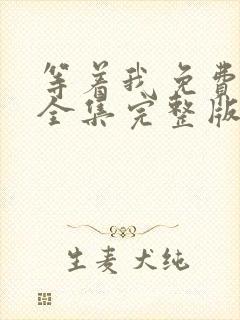 等着我免费
全集完整版
生麦犬纯